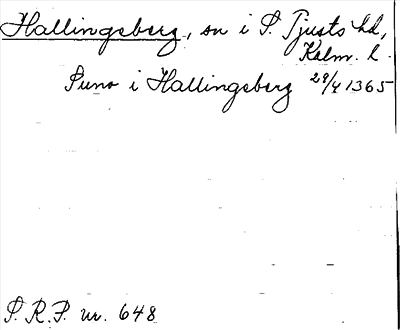 Hallingsberg, sn i S. Tjusts hd,
Kalm. l.
Suno i Hallingsberg 29/4 1365
S. R. P. nr. 648